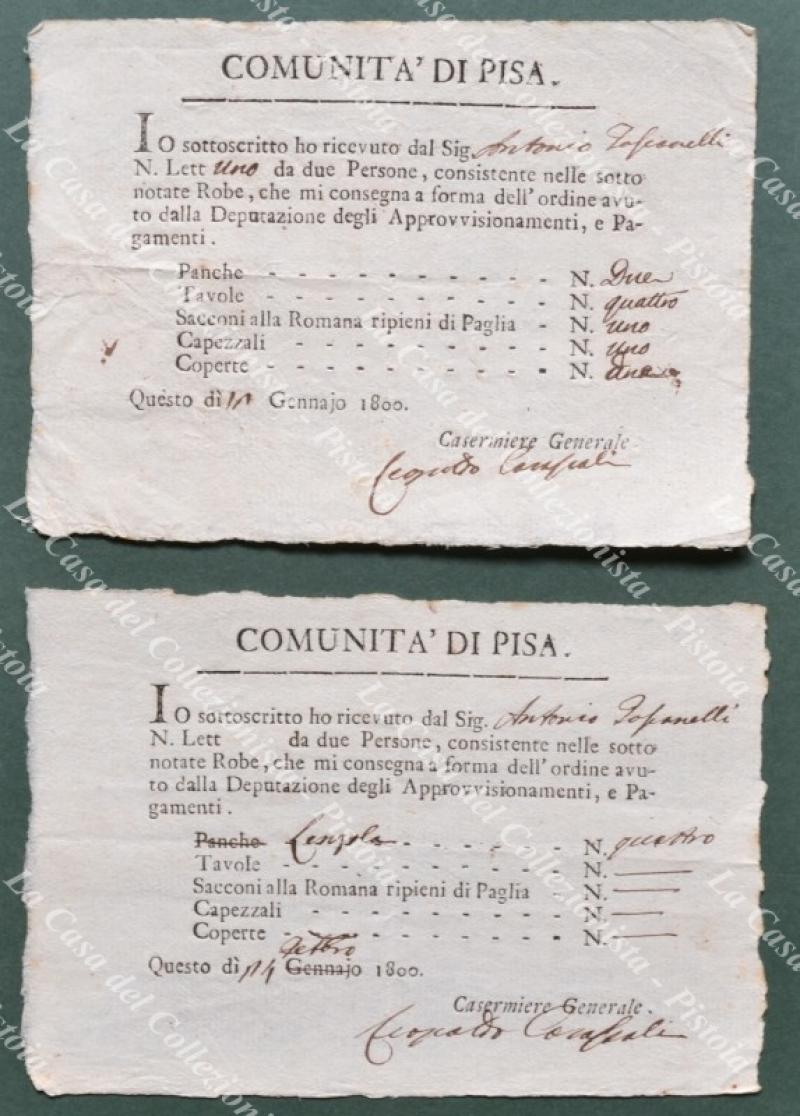 COMUNITA' DI PISA.
IO sottoscritto ho ricevuto dal Sig. Antonio
N. Lett uno da due Persone, consistente nelle sotto
notate Robe, che mi consegna a forma dell'ordine avu-
to dalla Deputazione degli Approvvisionamenti, e Pa-
gamenti.
Panche - - - - - - - - - - N. Due
Tavole - - - - - - - - - - N. quattro
Sacconi alla Romana ripieni di Paglia - N. uno
Capezzali - - - - - - - - - N. uno
Coperte - - - - - - - - - - N. due
Questo dì Gennajo 1800.
Casermiere Generale
Leopoldo
COMUNITA' DI PISA.
IO sottoscritto ho ricevuto dal Sig. Antonio
N. Lett da due Persone, consistente nelle sotto
notate Robe, che mi consegna a forma dell'ordine avu-
to dalla Deputazione degli Approvvisionamenti, e Pa-
gamenti.
Panche Lenzola - - - - - - N. quattro
Tavole - - - - - - - - - - N. —
Sacconi alla Romana ripieni di Paglia - N. —
Capezzali - - - - - - - - - N. —
Coperte - - - - - - - - - - N. —
Questo dì 14 Gennajo 1800.
Casermiere Generale.
Leopoldo
La Casa del Collezionista - Pistoia